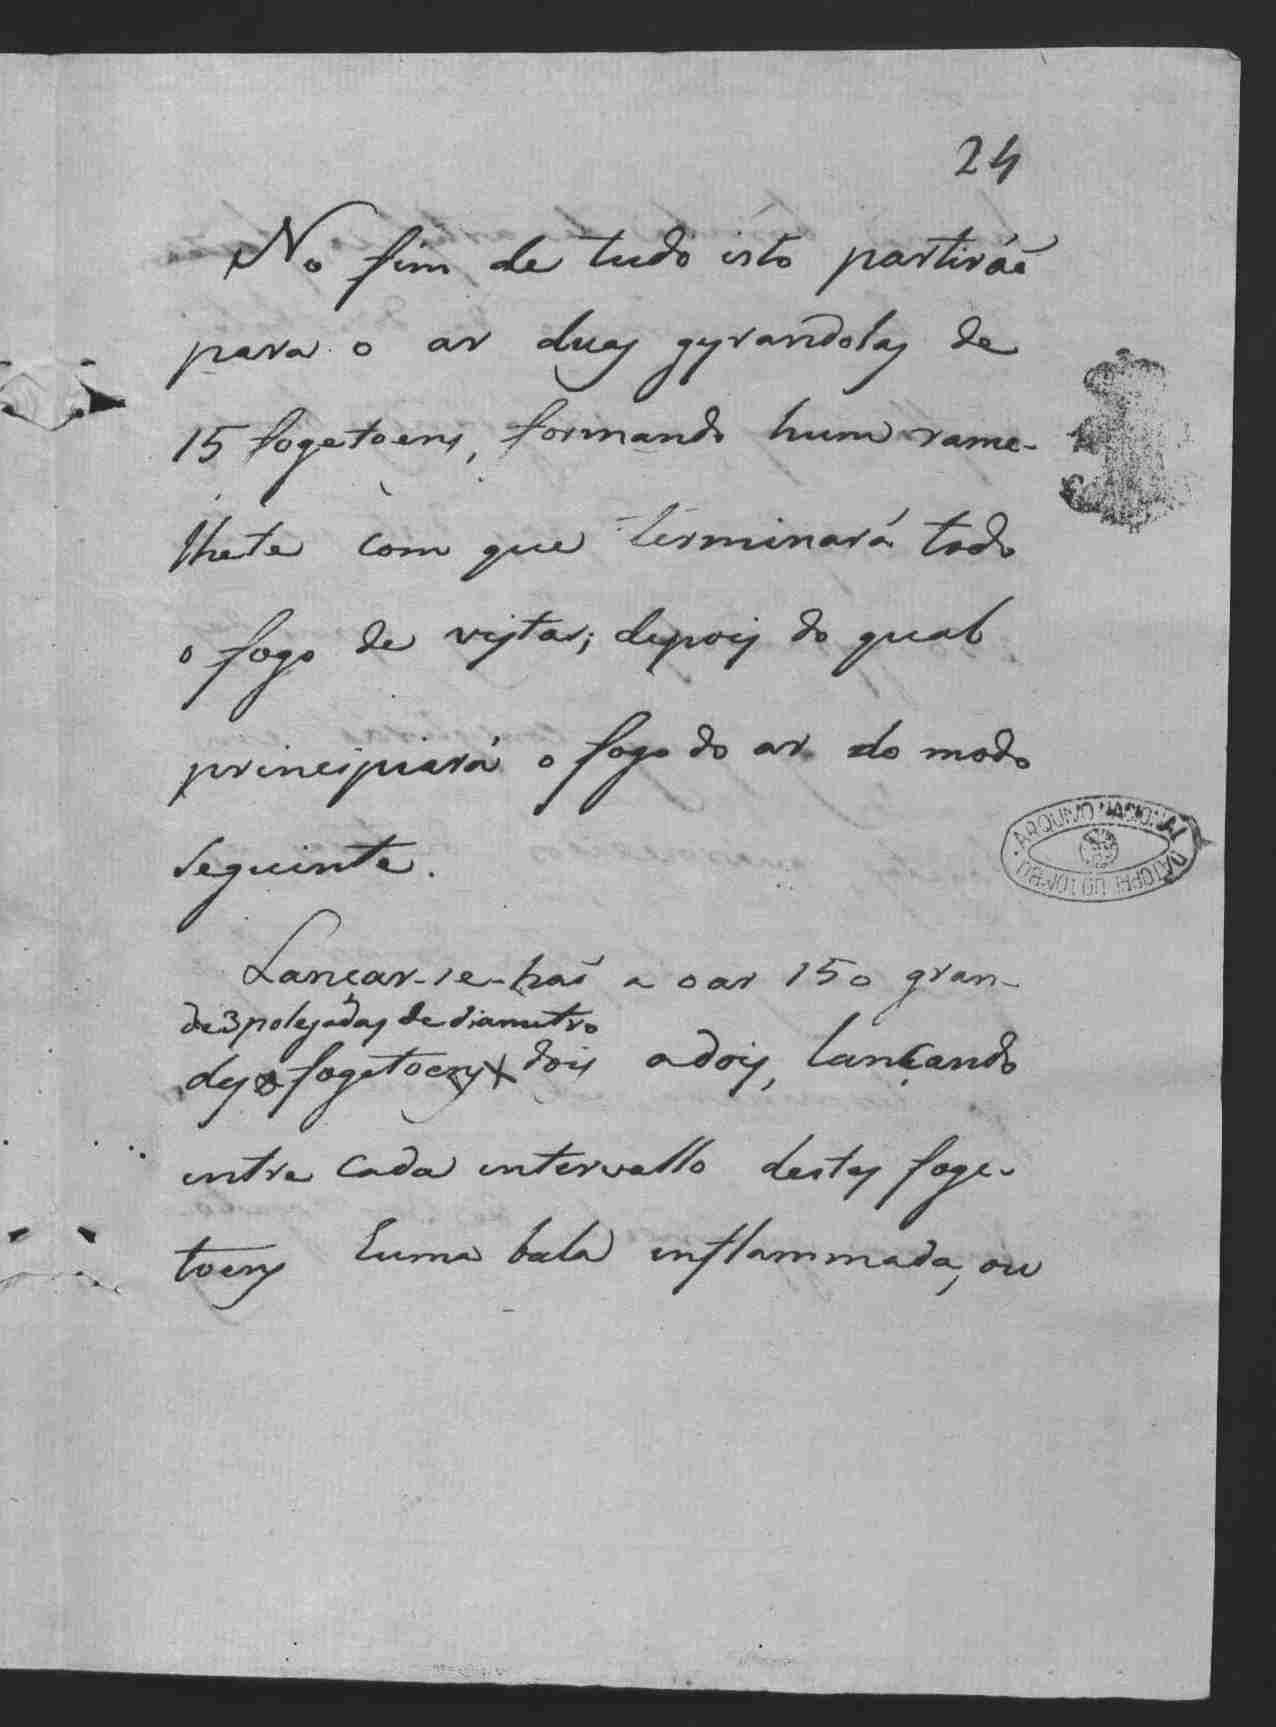 24
No fim de tudo isto partiráõ
para o ar duas gyrandolas de
15 fogetoens, formando hum rame-
lhete com que terminará todo
o fogo de vistas; depois do qual
principiará o fogo do ar do modo
seguinte.
Lançar-se-haõ a o ar 150 gran-
de 3 polegadas de diametro
des fogetoens dois a dois, lançando
entre cada intervallo destes foge-
toens huma bala inflammada, ou
ARQUIVO NACIONAL